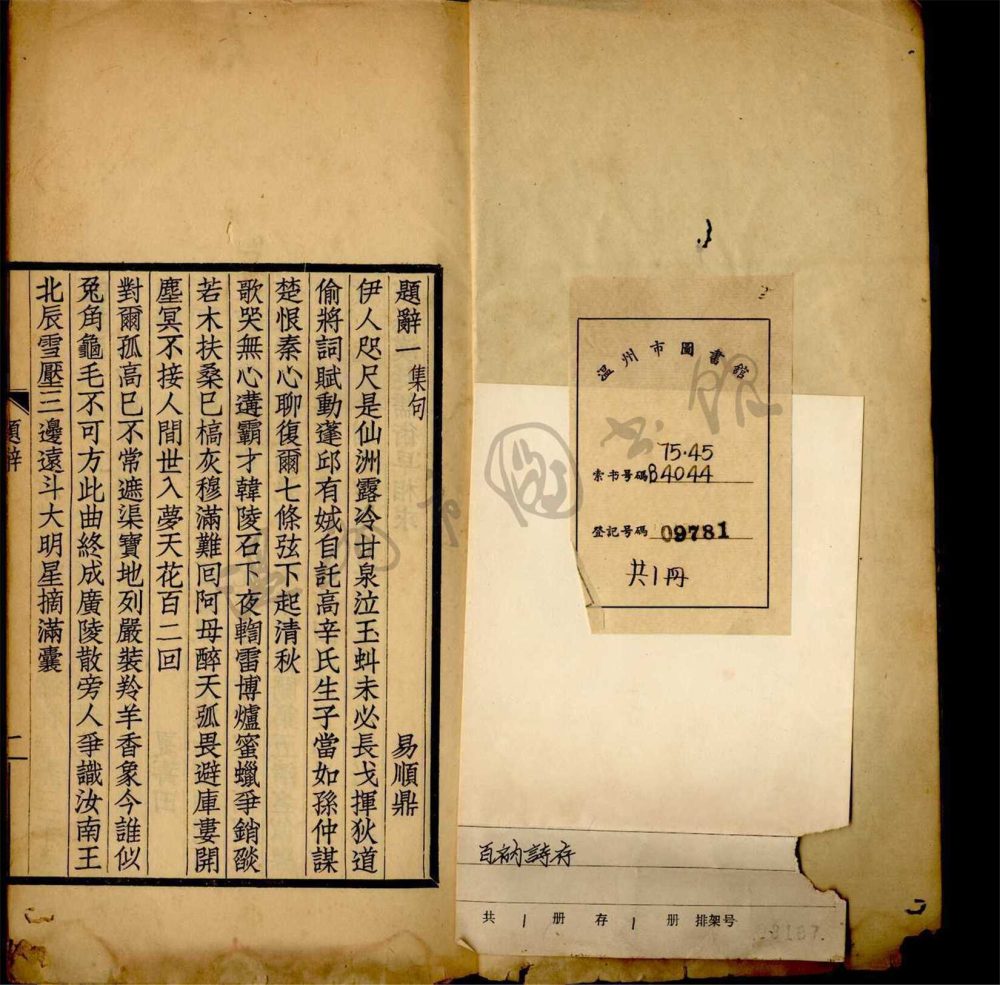 溫州市圖書館
索书号码 75.45
B4044
登記号碼 09781
共1冊
百衲詩存
共 1 册 存 1 册 排架号
題辭一 集句 易順鼎
伊人咫尺是仙洲露冷甘泉泣玉虯未必長戈揮狄道
偷將詞賦動蓬邱有娀自託高辛氏生子當如孫仲謀
楚恨秦心聊復爾七條弦下起清秋
歌哭無心遘霸才韓陵石下夜輷雷博爐蜜蠟爭銷燄
若木扶桑已槁灰穆滿難回阿母醉天弧畏避庫婁開
塵冥不接人間世入夢天花百二回
對爾孤高已不常遮渠寶地列嚴裝羚羊香象今誰似
兔角龜毛不可方此曲終成廣陵散旁人爭識汝南王
北辰雪壓三邊遠斗大明星摘滿囊
題辭